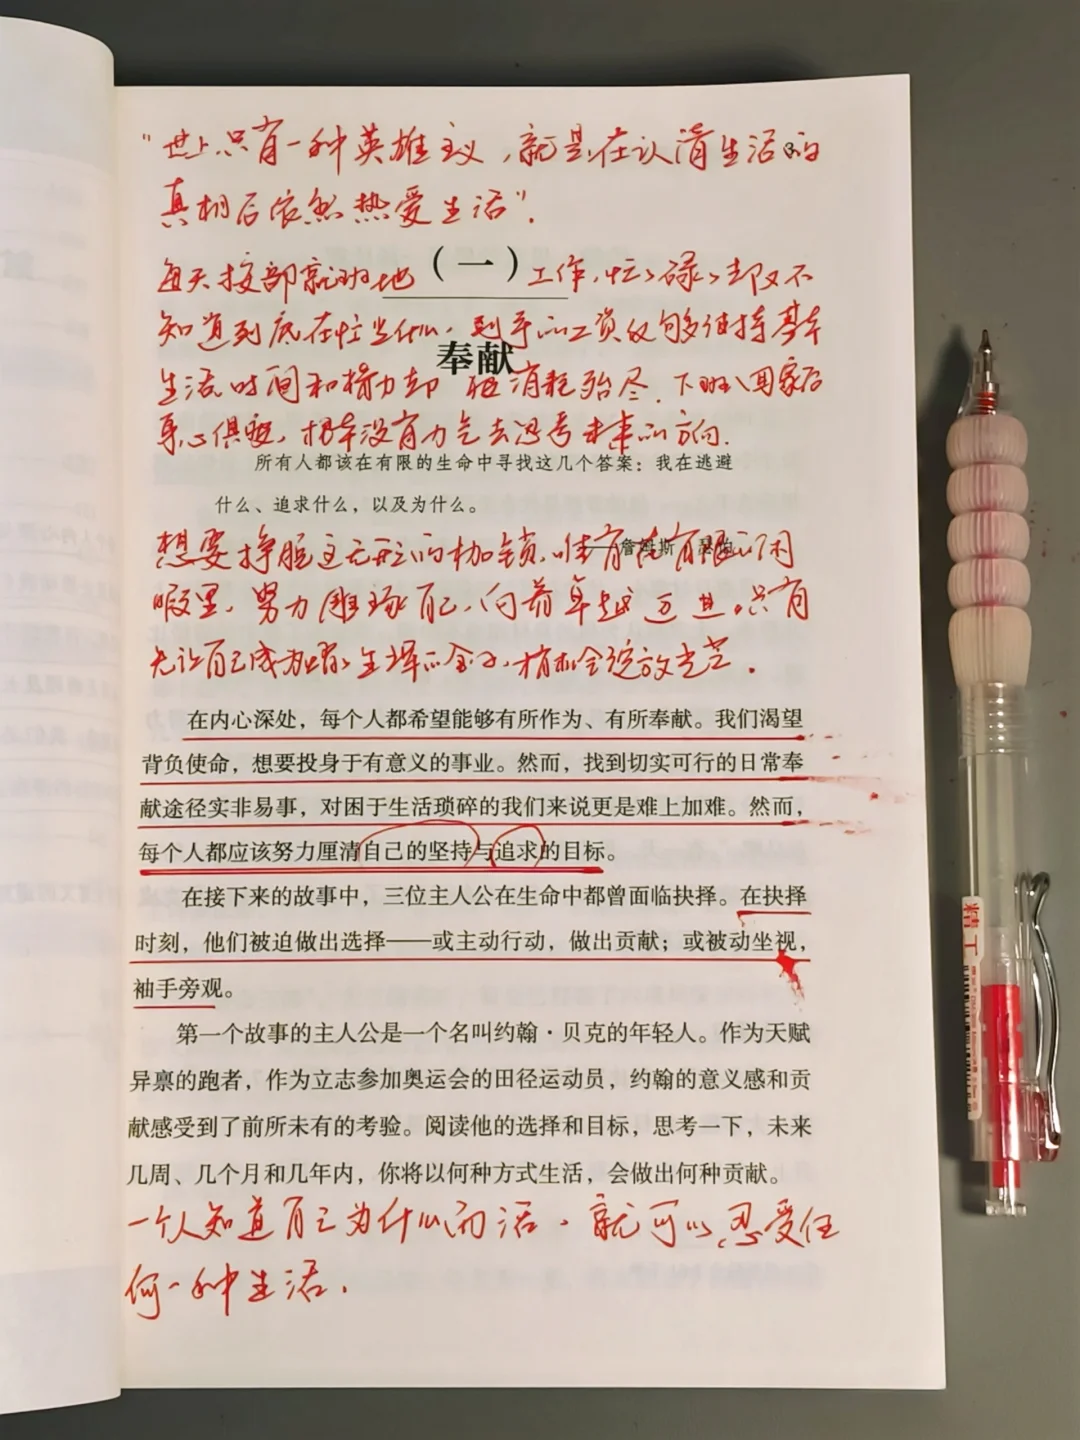 “世上只有一种英雄主义，就是在认清生活的
真相后依然热爱生活”.
每天按部就班地（一）工作，忙忙碌碌却又不
知道到底在忙些什么，到手的工资仅够维持基本
奉献
生活，时间和精力却被消耗殆尽．下班回家后
身心俱疲，根本没有力气去思考未来的方向．
所有人都该在有限的生命中寻找这几个答案：我在逃避
什么、追求什么，以及为什么。
——詹姆斯·瑟伯
想要挣脱这无形的枷锁，唯有在有限的闲
暇里，努力雕琢自己，向着卓越迈进．只有
先让自己成为熠熠生辉的金子，才有机会绽放光芒．
在内心深处，每个人都希望能够有所作为、有所奉献。我们渴望
背负使命，想要投身于有意义的事业。然而，找到切实可行的日常奉
献途径实非易事，对困于生活琐碎的我们来说更是难上加难。然而，
每个人都应该努力厘清自己的坚持与追求的目标。
在接下来的故事中，三位主人公在生命中都曾面临抉择。在抉择
时刻，他们被迫做出选择——或主动行动，做出贡献；或被动坐视，
袖手旁观。
第一个故事的主人公是一个名叫约翰·贝克的年轻人。作为天赋
异禀的跑者，作为立志参加奥运会的田径运动员，约翰的意义感和贡
献感受到了前所未有的考验。阅读他的选择和目标，思考一下，未来
几周、几个月和几年内，你将以何种方式生活，会做出何种贡献。
一个人知道自己为什么而活，就可以忍受任
何一种生活．
精工